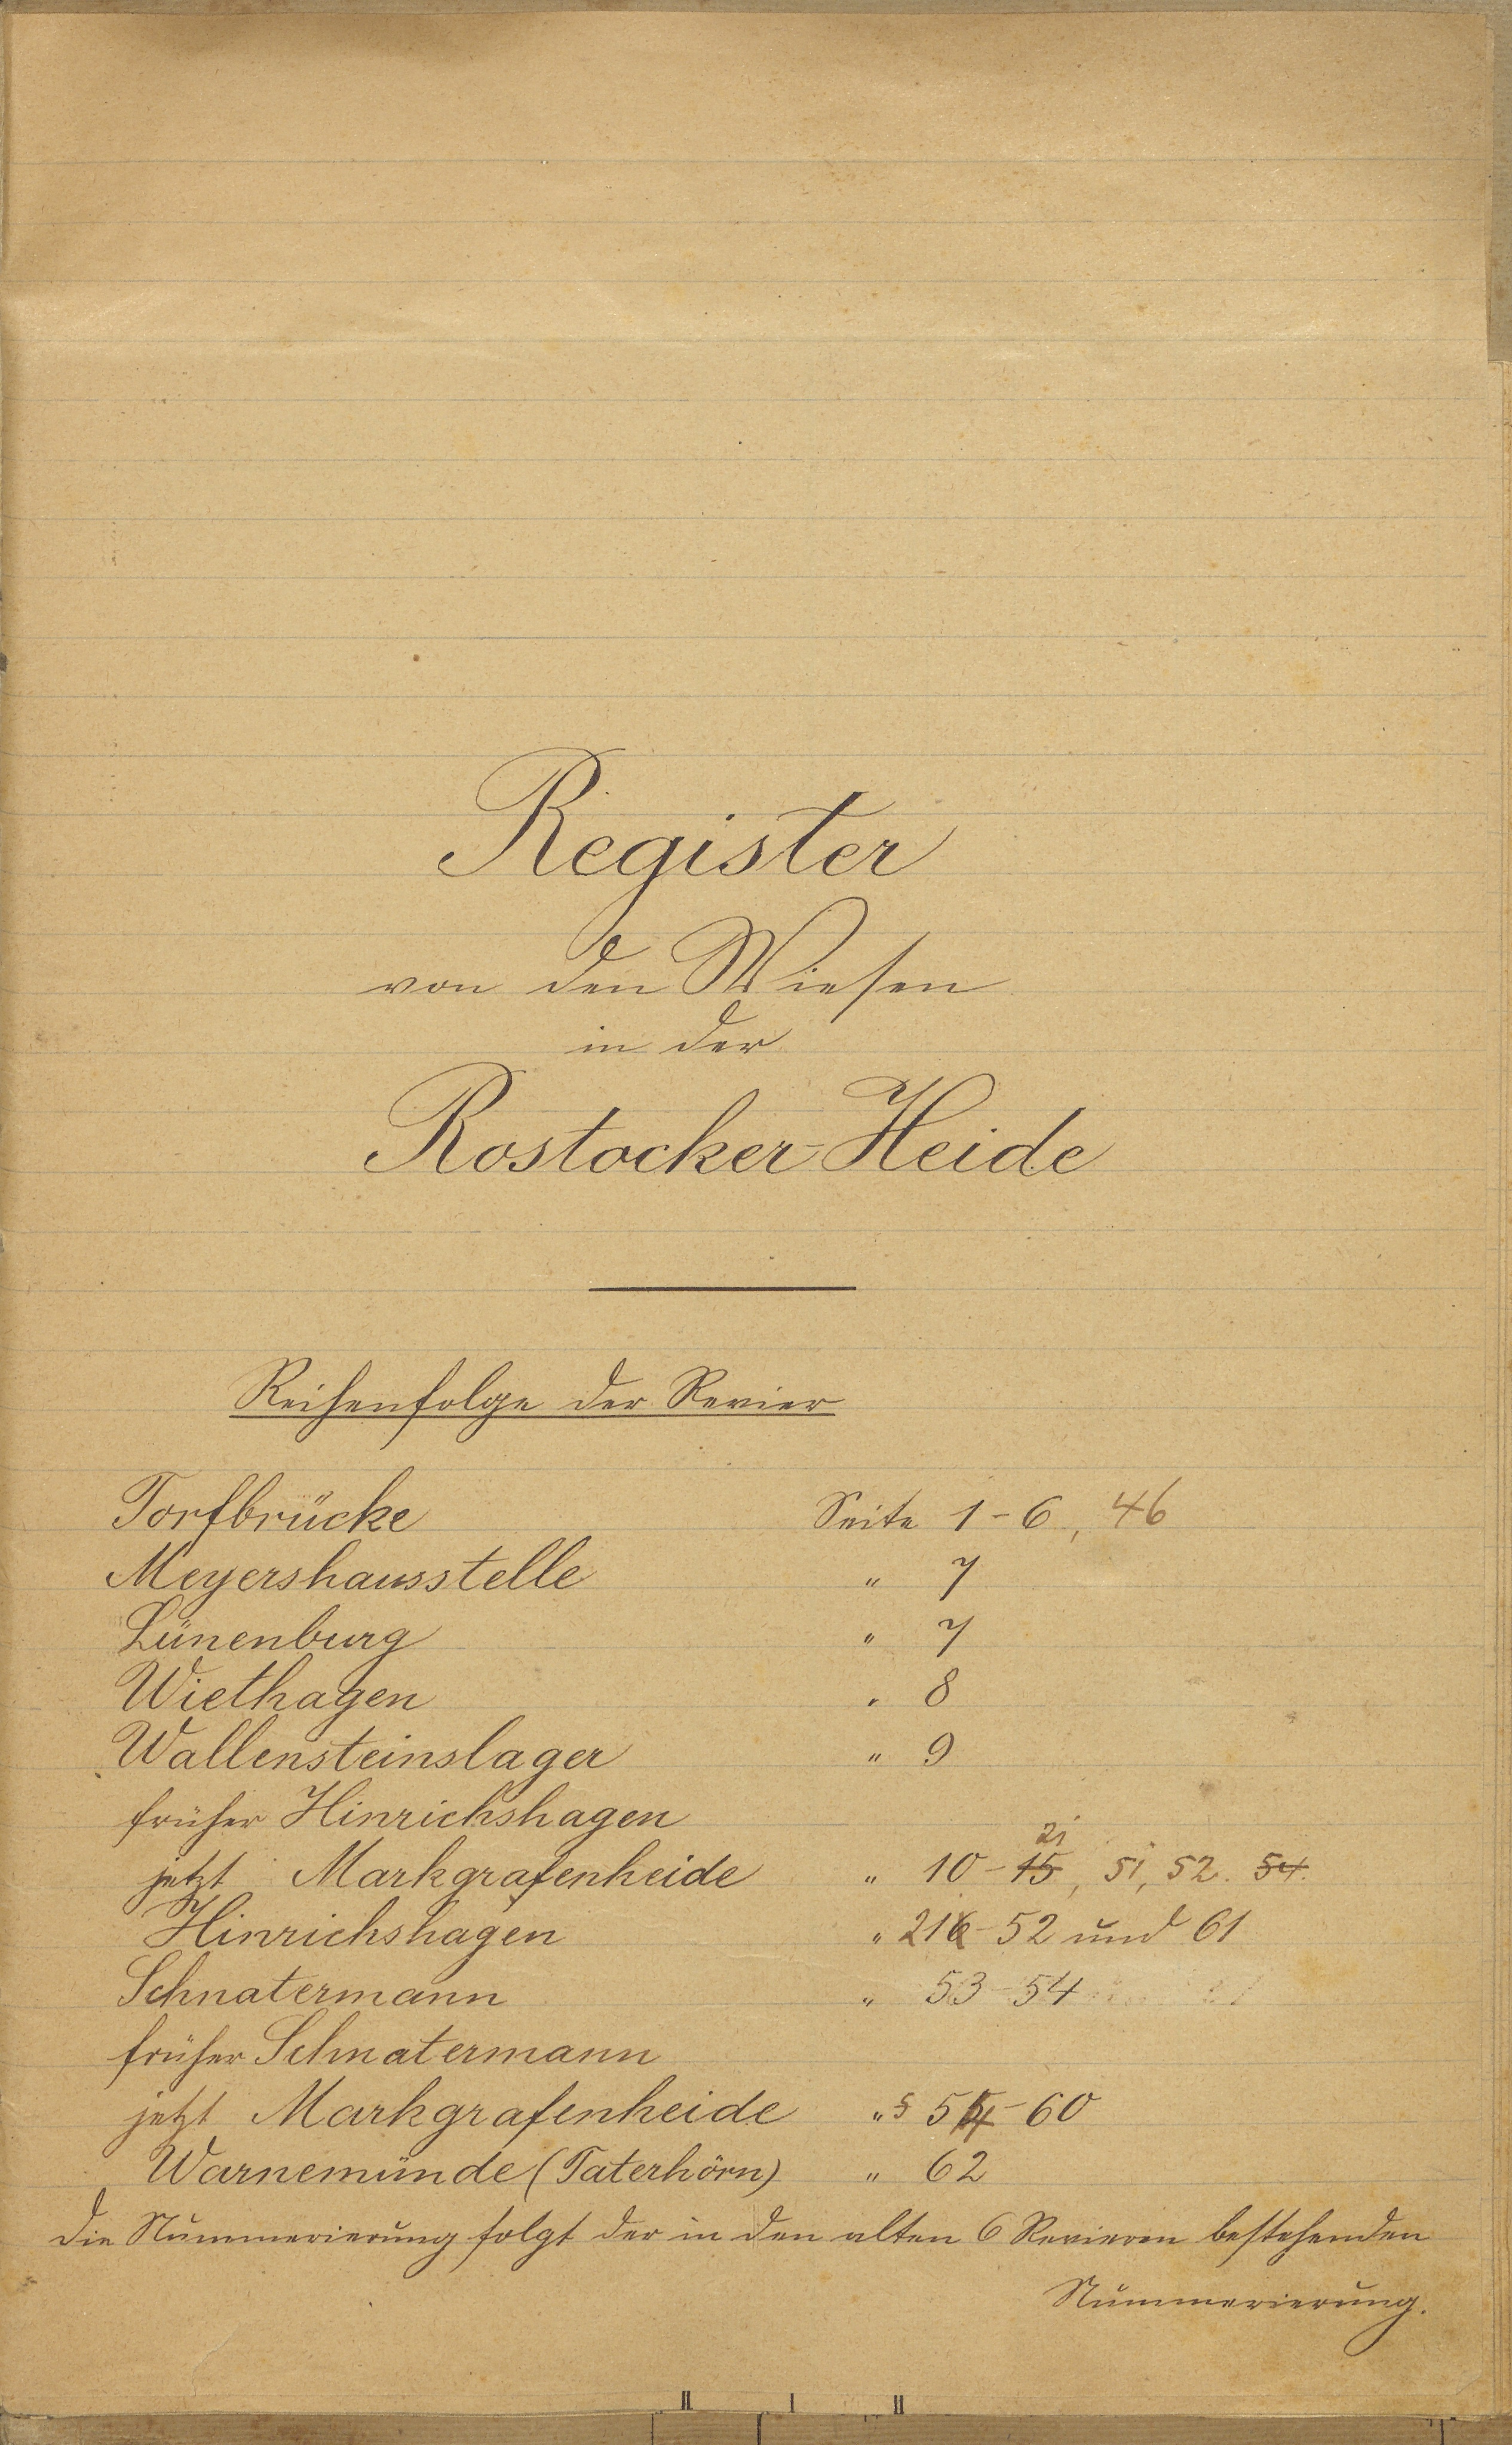 Register
von den Wiesen
in der
Rostocker-Heide
Reihenfolge der Revier
Torfbrücke Seite 1-6, 46
Meyershausstelle " 7
Lünenburg " 7
Wiethagen " 8
Wallensteinslager " 9
früher Hinrichshagen
21
jetzt Markgrafenheide " 10-15, 51, 52. 54.
Hinrichshagen " 216-52 und 61
Schnatermann " 53-54
früher Schnatermann
jetzt Markgrafenheide " 54-60
Warnemünde (Taterhörn) " 62
Die Nummerierung folgt der in den alten 6 Revieren bestehenden
Nummerierung.